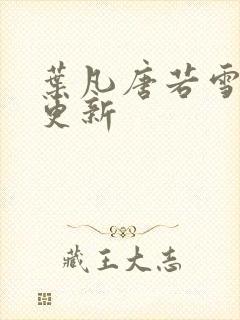 葉凡唐若雪
更新
藏王大志